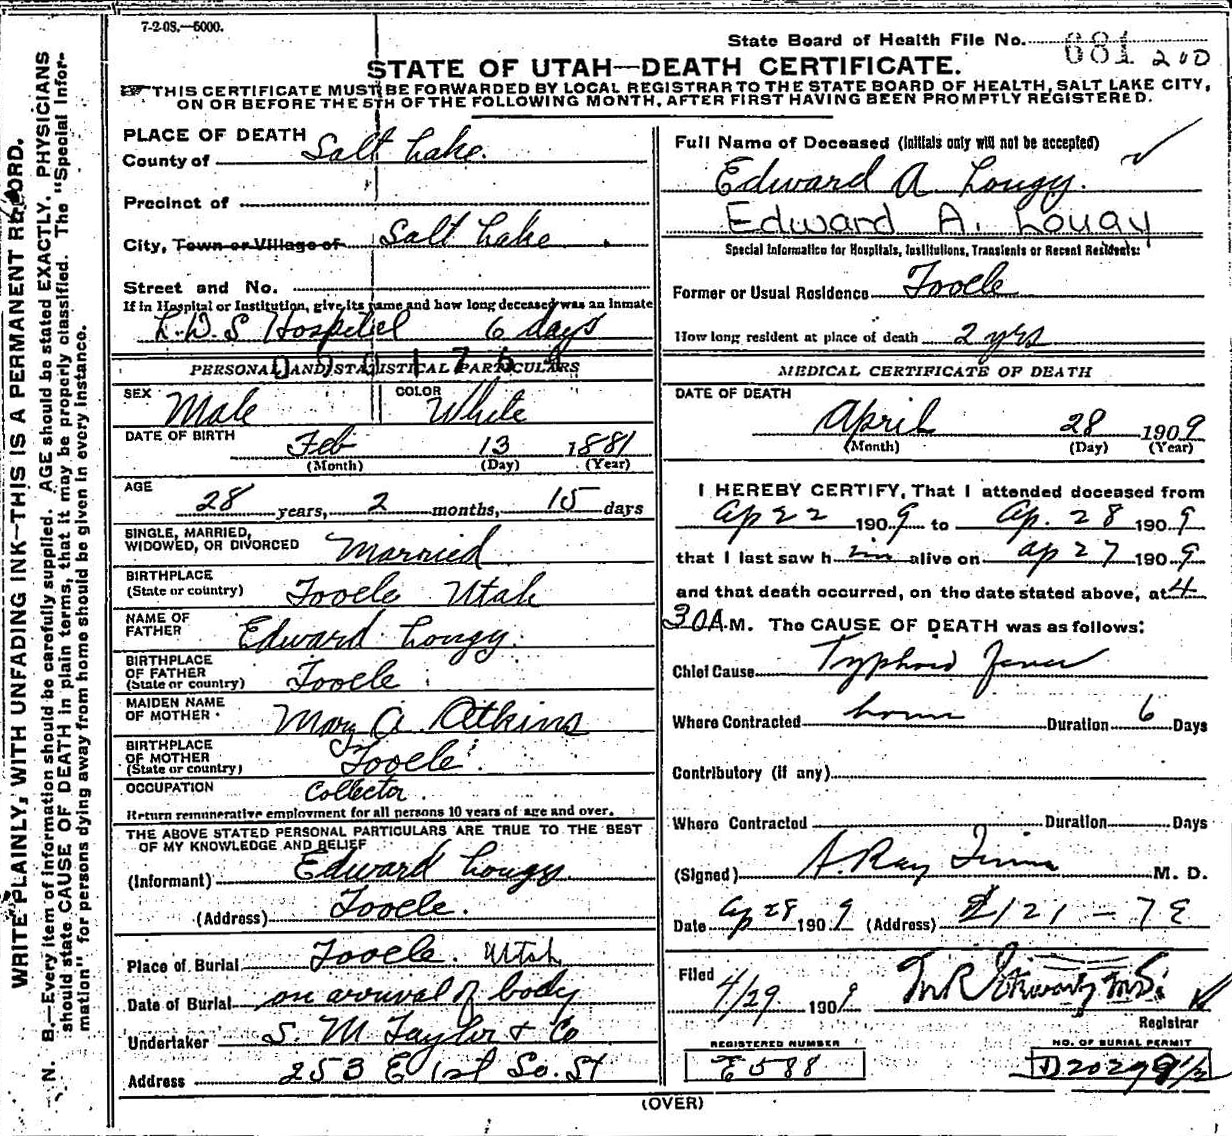 7-2-08.—5000.
State Board of Health File No. 681 200
STATE OF UTAH—DEATH CERTIFICATE.
THIS CERTIFICATE MUST BE FORWARDED BY LOCAL REGISTRAR TO THE STATE BOARD OF HEALTH, SALT LAKE CITY,
ON OR BEFORE THE 5TH OF THE FOLLOWING MONTH, AFTER FIRST HAVING BEEN PROMPTLY REGISTERED.
WRITE PLAINLY, WITH UNFADING INK—THIS IS A PERMANENT RECORD.
N. B.—Every item of information should be carefully supplied. AGE should be stated EXACTLY. PHYSICIANS
should state CAUSE OF DEATH in plain terms, that it may be properly classified. The "Special Infor-
mation" for persons dying away from home should be given in every instance.
PLACE OF DEATH
County of Salt Lake.
Precinct of
City, Town or Village of Salt Lake
Street and No.
If in Hospital or Institution, give its name and how long deceased was an inmate
L.D.S Hospital 6 days
PERSONAL AND STATISTICAL PARTICULARS
SEX Male COLOR White
DATE OF BIRTH Feb 13 1881
(Month) (Day) (Year)
AGE
28 years, 2 months, 15 days
SINGLE, MARRIED,
WIDOWED, OR DIVORCED Married
BIRTHPLACE
(State or country) Tooele Utah
NAME OF
FATHER Edward Lougy.
BIRTHPLACE
OF FATHER
(State or country) Tooele
MAIDEN NAME
OF MOTHER Mary A Atkins
BIRTHPLACE
OF MOTHER
(State or country) Tooele.
OCCUPATION Collector.
Return remunerative employment for all persons 10 years of age and over.
THE ABOVE STATED PERSONAL PARTICULARS ARE TRUE TO THE BEST
OF MY KNOWLEDGE AND BELIEF
(Informant) Edward Lougy
(Address) Tooele.
Place of Burial Tooele. Utah
Date of Burial on arrival of body
Undertaker S. M Taylor & Co
Address 253 E 1st So. St
Full Name of Deceased (Initials only will not be accepted)
Edward A Lougy.
Edward A. Lougy
Special Information for Hospitals, Institutions, Transients or Recent Residents:
Former or Usual Residence Tooele
How long resident at place of death 2 yrs
MEDICAL CERTIFICATE OF DEATH
DATE OF DEATH
April 28 1909
(Month) (Day) (Year)
I HEREBY CERTIFY, That I attended deceased from
Ap 22 1909 to Ap. 28 1909
that I last saw him alive on Ap 27 1909
and that death occurred, on the date stated above, at 4
30 A.M. The CAUSE OF DEATH was as follows:
Chief Cause Typhoid Fever
Where Contracted home Duration 6 Days
Contributory (if any)
Where Contracted Duration Days
(Signed) A. Ray M. D.
Date Ap 28 1909 (Address)
Filed 4/29 1909
Registrar
REGISTERED NUMBER
E588
NO. OF BURIAL PERMIT
D2029
(OVER)